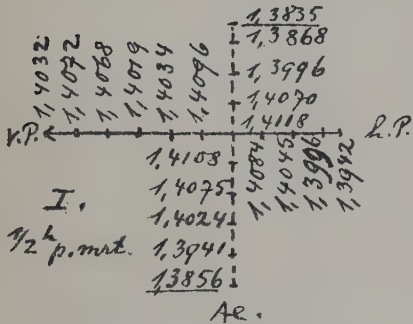 1,3835
1,3868
1,3996
1,4070
1,4118
1,4032
1,4072
1,4068
1,4019
1,4034
1,4096
v.P.
h.P.
1,4108
1,4075
1,4024
1,3941
1,3856
1,4084
1,4045
1,3996
1,3942
I.
1/2 h p. mrt.
Ae.